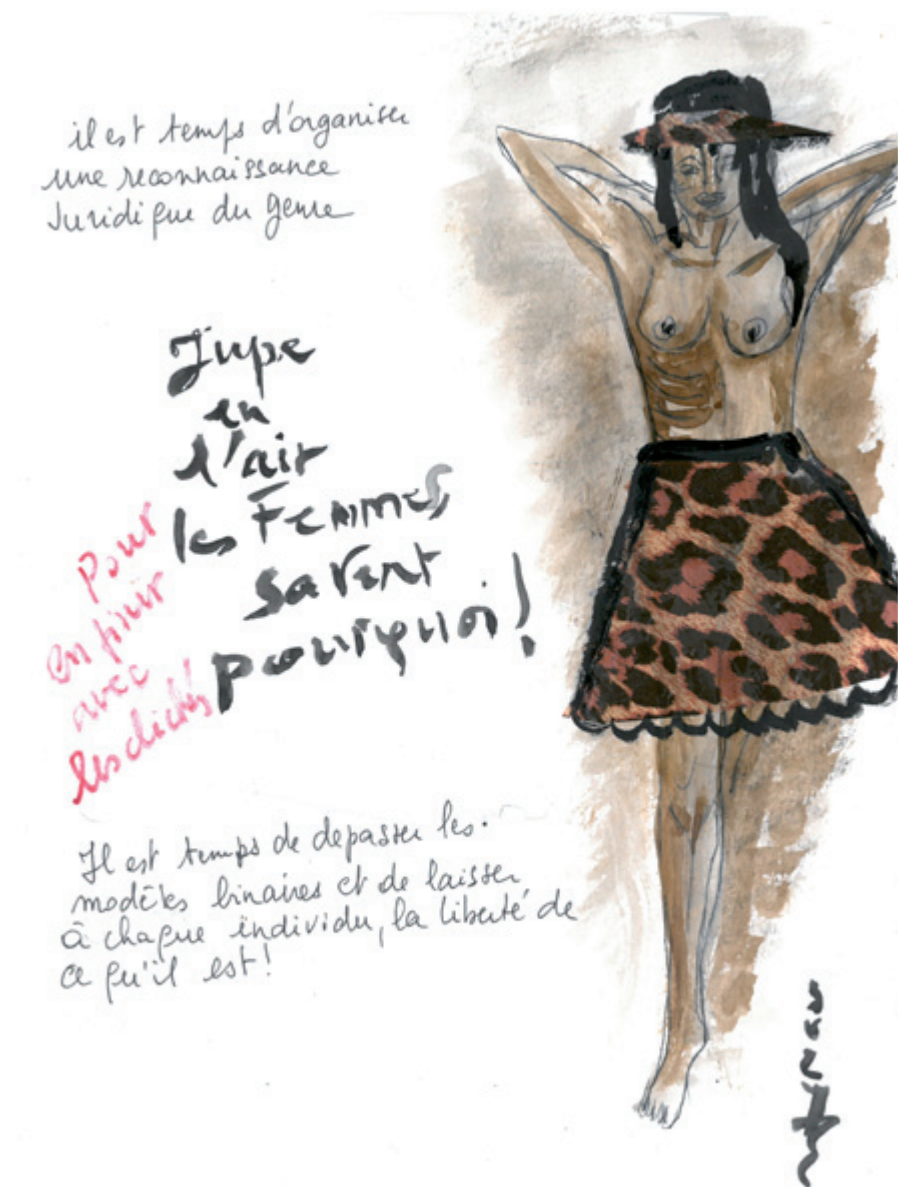 il est temps d'organiser
une reconnaissance
Juridique du genre
Jupe
en
l'air
les Femmes
savent
pourquoi!
Pour
en finir
avec
les clichés
Il est temps de depasser les
modèles binaires et de laisser
à chaque individu, la liberté de
ce qu'il est!